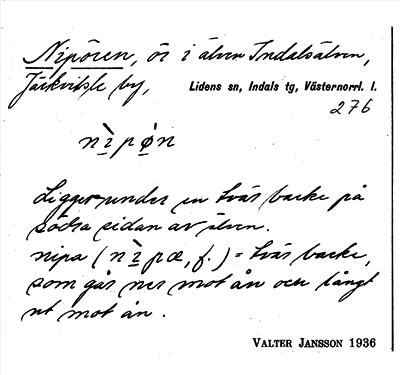 Nipören, ör i älven Indalsälven,
Järkvitsle by, Lidens sn, Indals tg, Västernorrl. l.
276
nìpǿn
Ligger under en tvär backe på
södra sidan av älven.
nipa (nìpæ, f.) = tvär backe,
som går ner mot ån och långt
ut mot ån.
VALTER JANSSON 1936